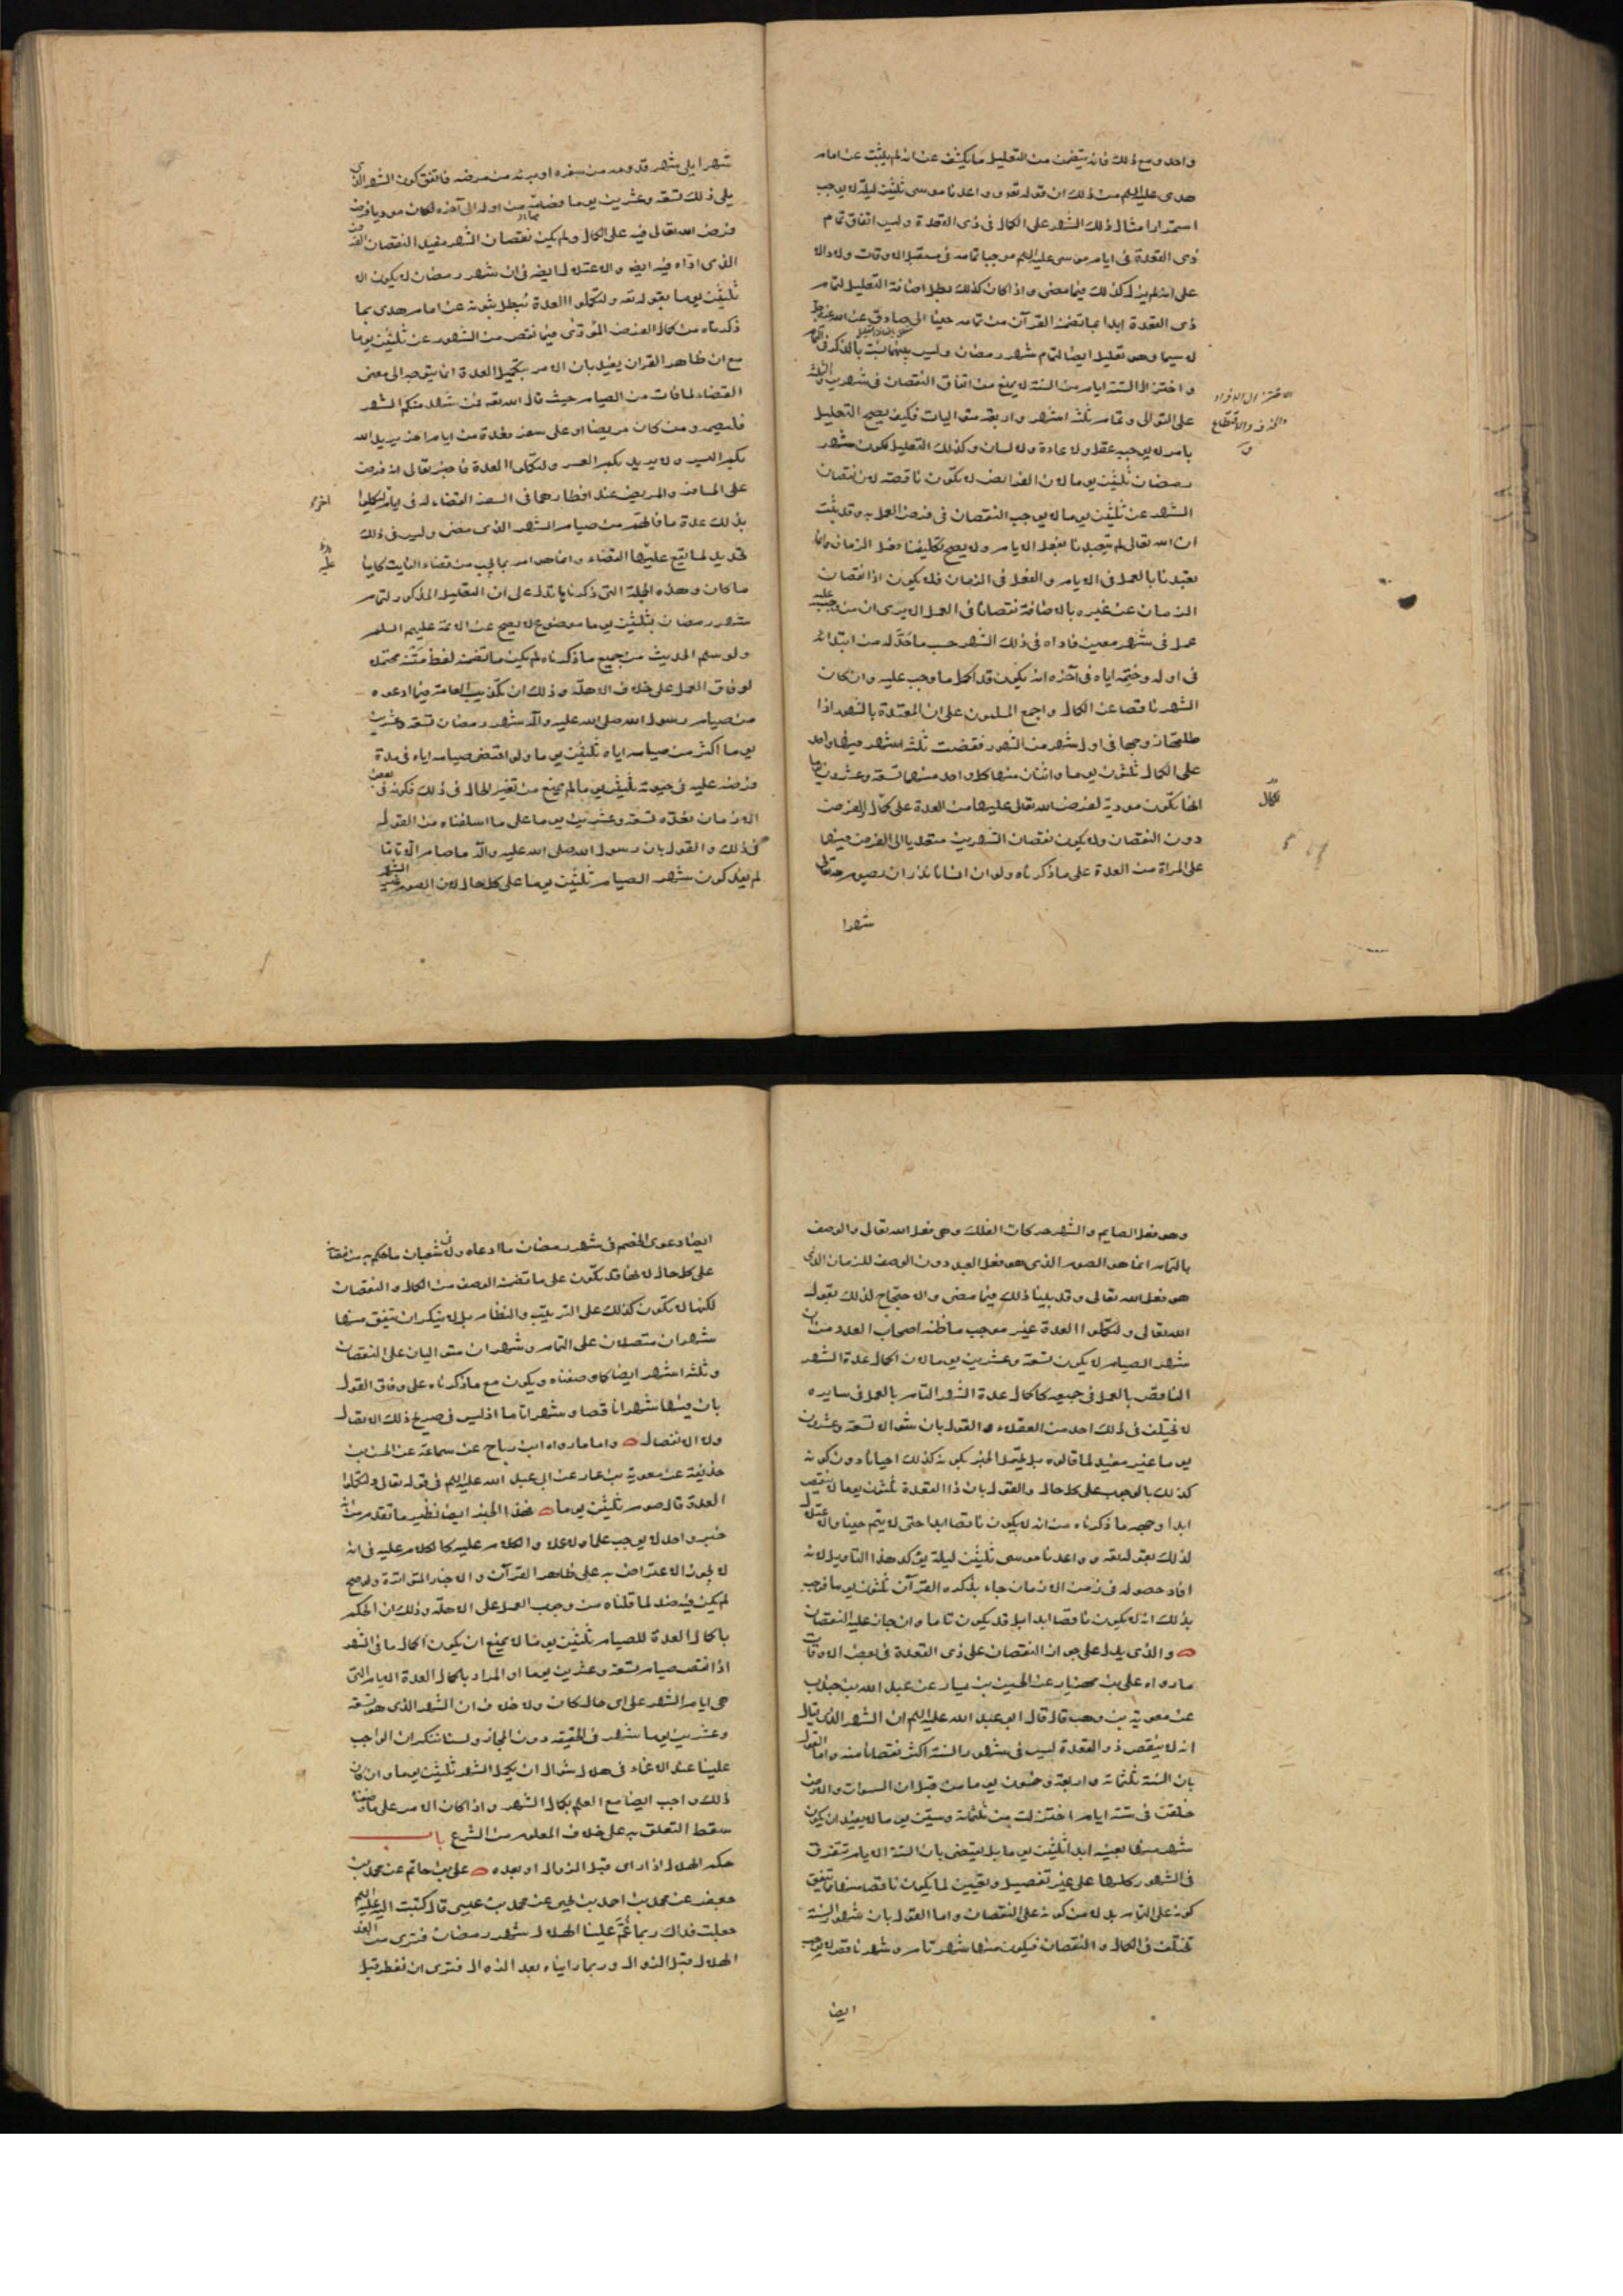 واحد ومع ذلك فانه يتضمن من التعليل ما يكشف عن انه لم يثبت عن امام
هدى عليه السلم من ذلك ان قوله تعه وواعدنا موسى ثلثين ليلة لا يوجب
استمرار امثال ذلك الشهر على الكمال فى ذى القعدة وليس اتفاق تمام
ذى القعدة فى ايام موسى عليه السلم موجبا تمامه فى مستقبل الاوقات ولا دالا
على انه لم يزل كذلك فيما مضى واذا كان كذلك بطل اضافة التعليل لتمام
ذى القعدة ابدا بما تضمنه القرآن من تمامه حينا الى صادق عن الله
لا سيما وهو تعليل ايضا لتمام شهر رمضان وليس بينهما نسبة بالذكر فى التمام
واختزال الستة ايام من السنة لا يمنع من اتفاق النقصان فى شهرين وثلثة
على التوالى وتمام ثلثة اشهر واربعة متواليات فكيف يصح التعليل
بامر لا يوجبه عقل ولا عادة ولا لسان وكذلك التعليل لكون شهر
رمضان ثلثين يوما لان الفرايض لا تكون ناقصة لان نقصان
الشهر عن ثلثين يوما لا يوجب النقصان فى فرض العمل به وقد ثبت
ان الله تعالى لم يتعبدنا بفعل الايام ولا يصح تكليفنا فعل الزمان وانما
تعبدنا بالعمل فى الايام والفعل فى الزمان فلا يكون اذا نقصان
الزمان عن غيره بالاضافة نقصانا فى العمل الا يرى ان من وجب عليه
عمل فى شهر معين فاداه فى ذلك الشهر حسب ما حدّ له من ابتدائه
فى اوله وختمه اياه فى آخره انه يكون قد اكمل ما وجب عليه وان كان
الشهر ناقصا عن الكمال واجمع المسلمون على ان المعتدة بالشهور اذا
طلقها زوجها فى اول شهر من الشهور فقضت ثلثة اشهر فيها واحد
على الكمال ثلثون يوما واثنان منها كل واحد منهما تسعة وعشرون يوما
انها تكون مودية لفرض الله تعالى عليها من العدة على كمال الفرض
دون النقصان ولا يكون نقصان الشهرين متعديا الى الفرض فيها
على المراة من العدة على ما ذكرناه ولو ان انسانا نذر ان يصوم لله تعالى
شهرا
الاختزال الافراد
والحذف والاقتطاع
ق
كمال
شهرا يلى شهر قدومه من سفره او برئه من مرضه فاتفق كون الشهر الذى
يلى ذلك تسعة وعشرين يوما فصامه من اوله الى آخره لكان موديا فرض
فرض الله تعالى فيه على الكمال ولم يكن نقصان الشهر مفيد النقصان الفرض
الذى اداه فيه ايضا والاعتلال ايضا فى ان شهر رمضان لا يكون الا
ثلثين يوما بقوله تعه ولتكملوا العدة يبطل ثبوته عن امام هدى بما
ذكرناه من كمال الفرض المؤدى فيما نقص من الشهور عن ثلثين يوما
مع ان ظاهر القران يفيد بان الامر بتكميل العدة انما يتوجه الى معنى
القضاء لما فات من الصيام حيث قال الله تعه فمن شهد منكم الشهر
فليصمه ومن كان مريضا او على سفر فعدة من ايام اخر يريد الله
بكم اليسر ولا يريد بكم العسر ولتكملوا العدة فاخبر تعالى انه فرض
على المسافر والمريض عند افطارهما فى السفر القضاء له فى ايام ليكملوا
بذلك عدة ما فاتهم من صيام الشهر الذى مضى وليس فى ذلك
تحديد لما يقع عليها القضاء وانما هو امر بما يجب من قضاء الفايت كاينا
ما كان وهذه الجملة التى ذكرناها تدل على ان التعليل المذكور لتمام
شهر رمضان بثلثين يوما موضوع لا يصح عن الائمة عليهم السلم
ولو سلم الحديث من جميع ما ذكرناه لم يكن ما تضمنه لفظ متنه محتمله
لوفاق العمل على خلاف الاهلة وذلك ان تكذيب العامة فيما ادعوه
من صيام رسول الله صلى الله عليه وآله شهر رمضان تسعة وعشرين
يوما اكثر من صيامه اياه ثلثين يوما ولو اقتضى صيامه اياه فى مدة
فرضه عليه فى حيوته ثلثين يوما لم يمنع من تغير الحال فى ذلك فكونه فى بعض
الازمان بعده تسعة وعشرين يوما على ما اسلفناه من القول
فى ذلك والقول بان رسول الله صلى الله عليه وآله ما صام الا تاما
لم يفد كون شهر الصيام ثلثين يوما على كل حال لان الصوم غير الشهر
اخر
وهو فعل الصايم والشهر حركات الفلك وهى فعل الله تعالى والوصف
بالتمام انما هو الصوم الذى هو فعل العبد دون الوصف للزمان الذى
هو فعل الله تعالى وقد بيّنا ذلك فيما مضى والاحتجاج لذلك بقول
الله تعالى ولتكملوا العدة غير موجب ما ظنه اصحاب العدد من ان
شهر الصيام لا يكون تسعة وعشرين يوما لان اكمال عدة الشهر
الناقص بالعمل فى جميعه كاكمال عدة الشهر التام بالعمل فى سايره
لا يختلف فى ذلك احد من العقلاء والقول بان شوال تسعة وعشرون
يوما غير مفيد لما قالوه بل يحتمل الخبر بكونه كذلك احيانا دون كونه
كذلك بالوجوب على كل حال والقول بان ذا القعدة ثلثون يوما لا ينقص
ابدا وجهه ما ذكرناه من انه لا يكون ناقصا ابدا حتى لا يتم حينا والاعتلال
لذلك بقوله تعه وواعدنا موسى ثلثين ليلة يؤكد هذا التاويل لانه
افاد حصوله فى زمن الازمان جاء بذكره القرآن ثلثون يوما فوجب
بذلك انه لا يكون ناقصا ابدا بل قد يكون تاما وان جاز عليه النقصان
والذى يدل على جواز النقصان على ذى القعدة فى بعض الاوقات
ما رواه على بن مهزيار عن الحسين بن يسار عن عبد الله بن جندب
عن معوية بن وهب قال قال ابو عبد الله عليه السلم ان الشهر الذى يقال
انه لا ينقص ذو القعدة ليس فى شهور السنة اكثر نقصانا منه واما القول
بان السنة ثلثمائة واربعة وخمسون يوما من قبل ان السموات والارض
خلقن فى ستة ايام اختزلت من ثلثمائة وستين يوما لا يفيد ان يكون
شهر منها بعينه ابدا ثلثين يوما بل يقتضى بان الستة الايام تتفرق
فى الشهور كلها على غير تفصيل وتعيين لما يكون ناقصا منها مما يتفق
كونه على التمام بدلا من كونه على النقصان واما القول بان شهور السنة
تختلف فى الكمال والنقصان فيكون منها شهر تام وشهر ناقص لا يوجب
ايضا
ايضا دعوى الخصم فى شهر رمضان ما ادعاه ولا فى شعبان ما حكم به من نقصانه
على كل حال لانها قد تكون على ما تضمنه الوصف من الكمال والنقصان
لكنها لا تكون كذلك على الترتيب والنظام بل لا ينكر ان يتفق منها
شهران متصلان على التمام وشهران متواليان على النقصان
وثلثة اشهر ايضا كما وصفناه ويكون مع ما ذكرناه على وفاق القول
بان فيها شهرا ناقصا وشهرا تاما اذ ليس فى صريح ذلك الاتصال
ولا الانفصال واما ما رواه ابن رباح عن سماعة عن الحسن بن
حذيفة عن معوية بن عمار عن ابى عبد الله عليه السلم فى قوله تعالى ولتكملوا
العدة قال صوم ثلثين يوما فهذا الخبر ايضا نظير ما تقدم من انه
خبر واحد لا يوجب علما ولا عملا والكلام عليه كالكلام عليه فى انه
لا يجوز الاعتراض به على ظاهر القرآن والاخبار المتواترة ولو صح
لم يكن فيه ضد لما قلناه من وجوب العمل على الاهلة وذلك ان الحكم
باكمال العدة للصيام ثلثين يوما لا يمنع ان يكون اكمال ما فى الشهر
اذا نقص صيام تسعة وعشرين يوما او المراد باكمال العدة الايام التى
هى ايام الشهر على اى حال كان ولا خلاف ان الشهر الذى هو تسعة
وعشرين يوما شهر فى الحقيقة دون المجاز ولسنا ننكر ان الواجب
علينا عند الاغماء فى هلال شوال ان نكمل الشهر ثلثين يوما وان كان
ذلك واجب ايضا مع العلم بكمال الشهر واذا كان الامر على ما وصفناه
سقط التعلق به على خلاف المعلوم من الشرع باب
حكم الهلال اذا راى قبل الزوال او بعده على بن حاتم عن محمد بن
جعفر عن محمد بن احمد بن يحيى عن محمد بن عيسى قال كتبت اليه عليه السلم
جعلت فداك ربما غُمّ علينا الهلال شهر رمضان فنرى من الغد
الهلال قبل الزوال وربما رايناه بعد الزوال فترى ان نفطر قبل